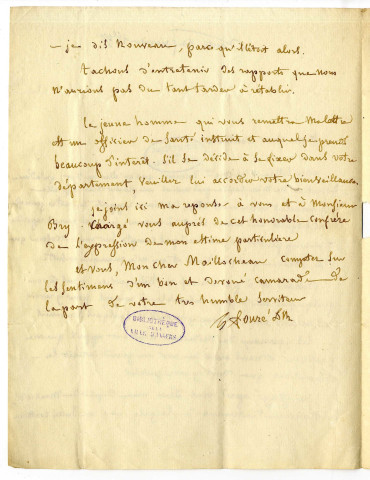 - je dis nouveau, parce qu'il étoit alors.
tachons d'entretenir des rapports que nous
n'aurions pas du tant tarder à rétablir.
Le jeune homme qui vous remettra Ma lettre
est un officier de santé instruit et auquel je prends
beaucoup d'interet. S'il se décide à se fixer dans votre
département, veuillez lui accorder votre bienveillance.
je joint ici ma reponse à vous et à Monsieur
Bry. Chargé vous auprès de cet honorable confrère
de l'expression de mon estime particulière
et vous, Mon cher Maillocheau comptez sur
les sentimens d'un bon et devoué camarade de
la part de votre très humble serviteur
Fouré DM
BIBLIOTHÈQUE
DE LA
VILLE D'ANGERS